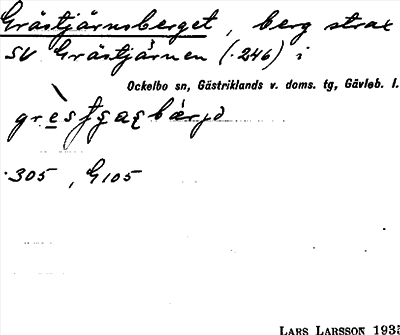 Grästjärnsberget, berg strax
SV Grästjärnen (.246) i
Ockelbo sn, Gästriklands v. doms. tg, Gävleb. l.
.305, G105
LARS LARSSON 1935